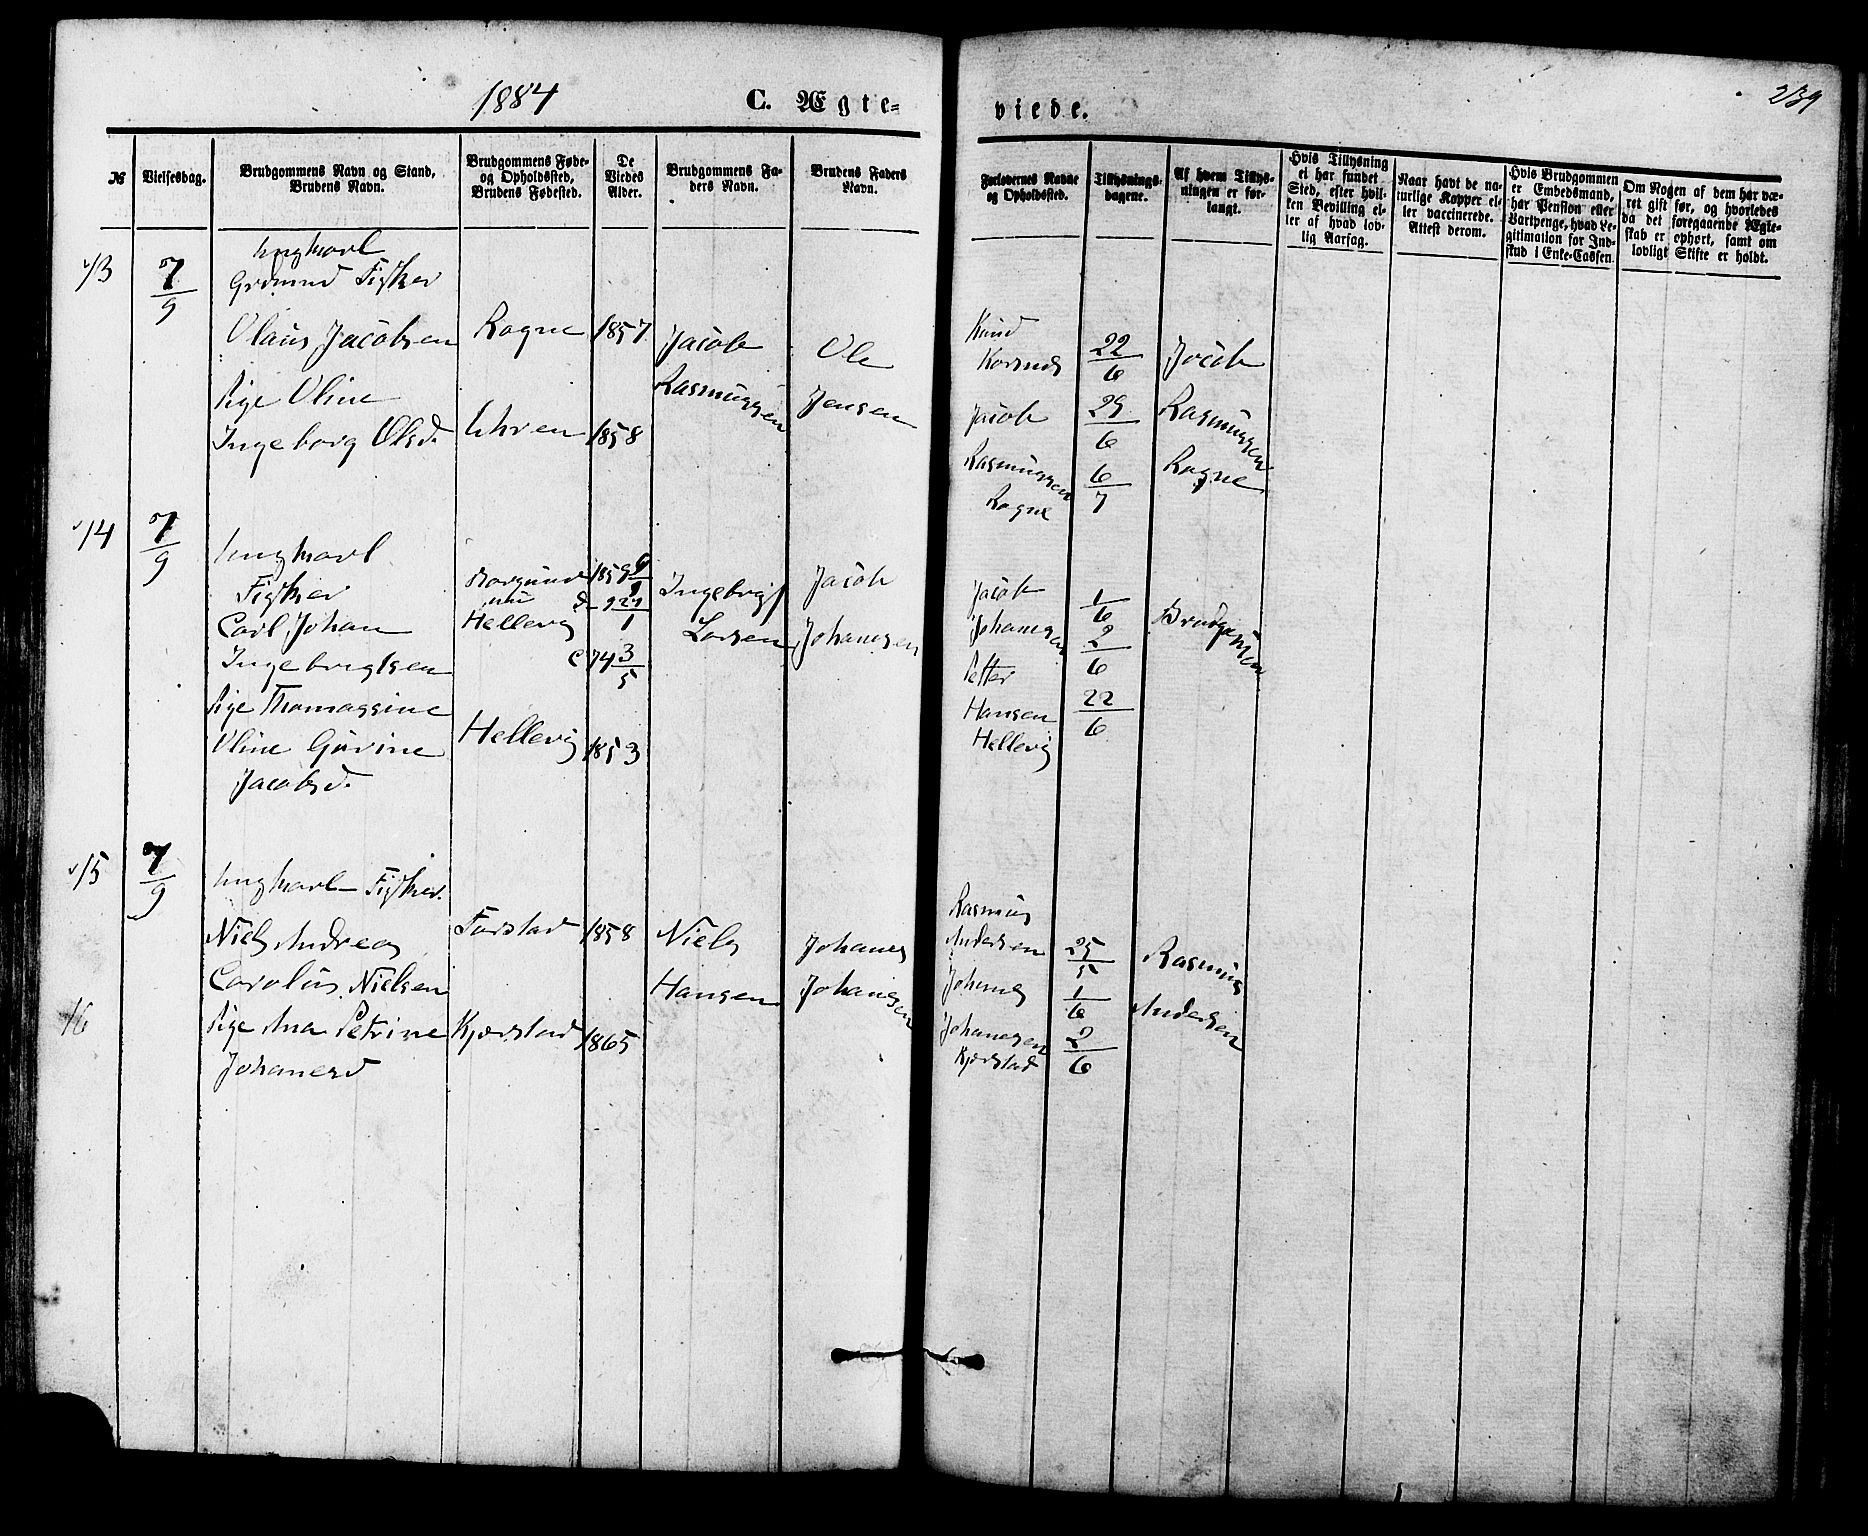 1884
C. Ægte=
viede.
239
N
Vielsesdag.
Brudgommens Navn og Stand,
Brudens Navn.
Brudgommens Føde-
og Opholdssted,
Brudens Fødested.
De
Viedes
Alder.
Brudgommens Fa-
ders Navn.
Brudens Faders
Navn.
Forlovernes Navne
og Opholdssted.
Tillysnings-
dagene.
Af hvem Tillys-
ningen er for-
langt.
Hvis Tillysning
ei har fundet
Sted, efter hvil-
ken Bevilling el-
ler af hvad lov-
lig Aarsag.
Naar havt de na-
turlige Kopper el-
ler vaccinerede.
Attest derom.
Hvis Brudgommen
er Embedsmand,
har Pension eller
Vartpenge, hvad Le-
gitimation for Ind-
skud i Enke-Cassen.
Om Nogen af dem har væ-
ret gift før, og hvorledes
da det foregaaende Ægte-
skab er ophørt, samt om
lovligt Skifte er holdt.
13
7/9
Ungkarl
Grdmand Fisker
Olaus Jacobsen
Pige Oline
Ingeborg Olsd.
Rogne
Uhren
1857
1858
Jacob
Rasmussen
Ole
Jensen
Knud
Korsnes
Jacob
Rasmussen
Rogne
22/6
29/6
6/7
Jacob
Rasmussen
Rogne
14
7/9
Ungkarl
Fisker
Carl Johan
Ingebrigtsen
Pige Thomassine
Oline Gurine
Jacobsd.
Borgund
nu
Hellevig
Hellevig
1859
C 74 3/5
1853
Ingebrigt
Larsen
Jacob
Johansen
Jacob
Johansen
Petter
Hansen
Hellevig
1/6
2/6
22/6
Brudgommen
15
7/9
Ungkarl Fisker.
Niels Andreas
Carolus Nielsen
Pige Ana Petrine
Johanesd
Farstad
Kjærstad
1858
1865
Niels
Hansen
Johanes
Johanesen
Rasmus
Andersen
Johanes
Johanesen
Kjærstad
25/5
1/6
2/6
Rasmus
Andersen
16